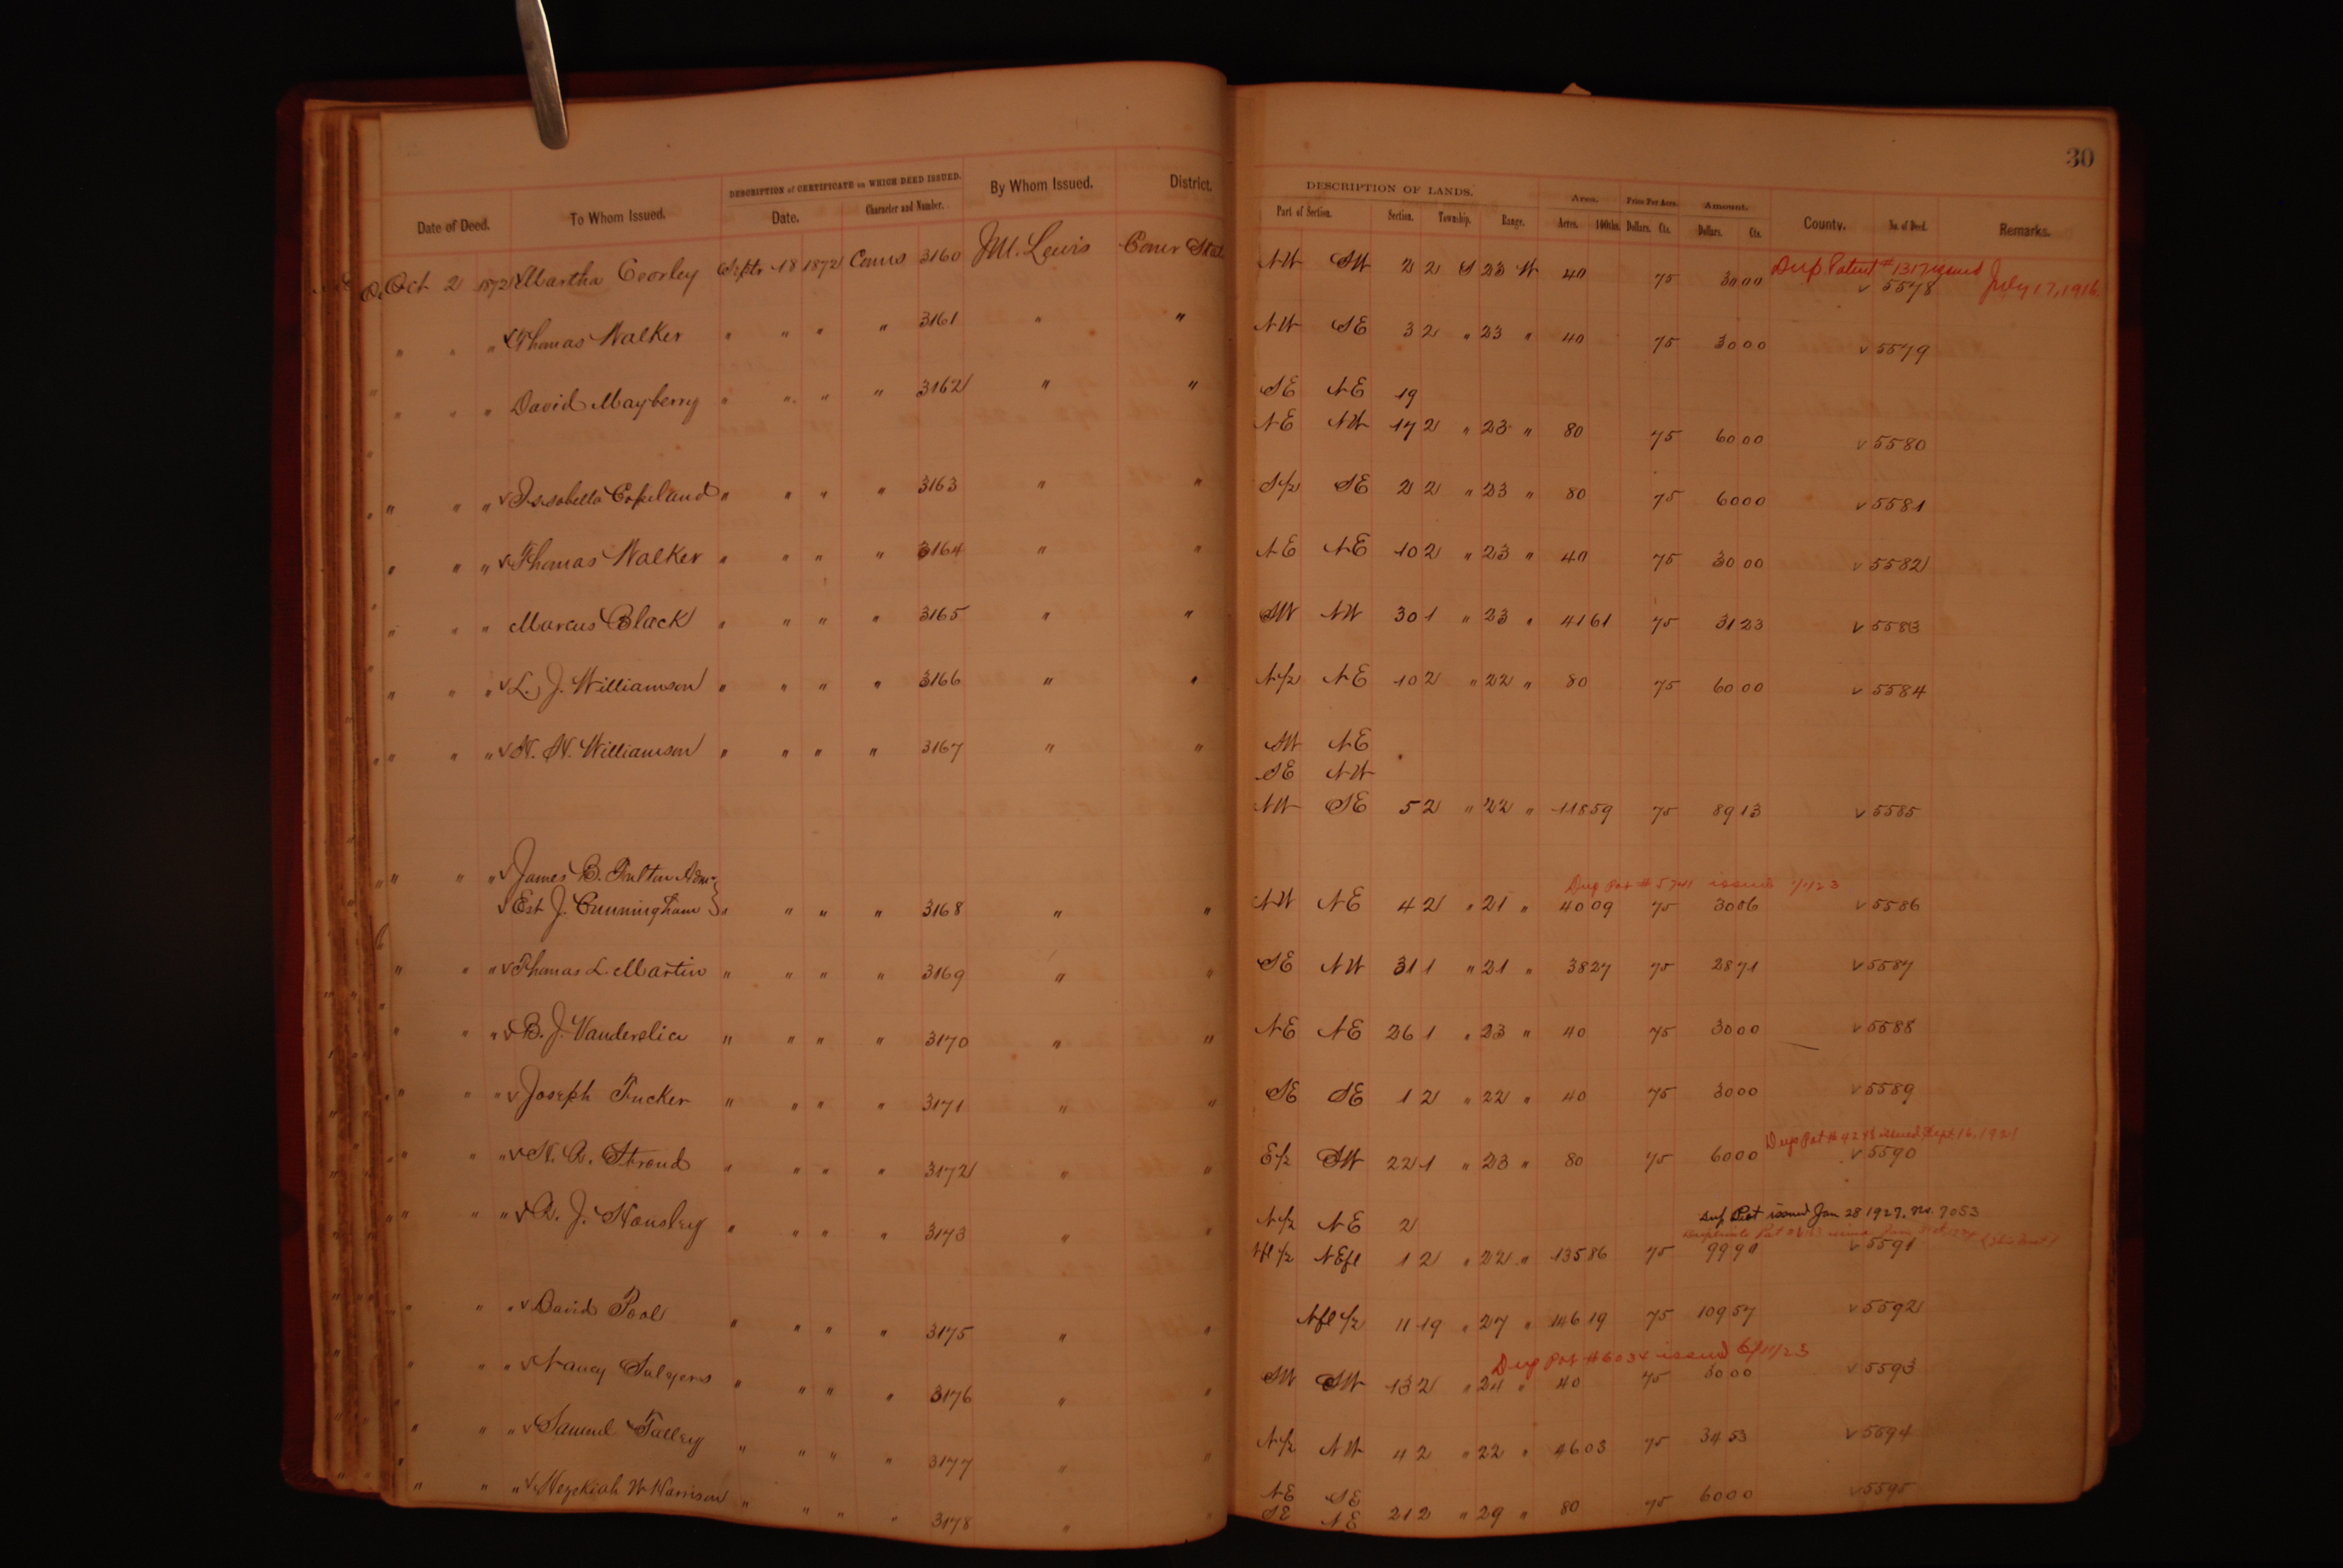 30
DESCRIPTION of CERTIFICATE on WHICH DEED ISSUED. By Whom Issued. District. DESCRIPTION OF LANDS. Area. Price Per Acre. Amount. County. No. of Deed. Remarks.
Date of Deed. To Whom Issued. Date. Character and Number. Part of Section. Section. Township. Range. Acres. 100ths. Dollars. Cts. Dollars. Cts.
Dup Patent # 1317 issued July 17, 1916
Oct 2 1872 Martha Coorley Septr 18 1872 Coms 3160 J.M. Lewis Comr State NW SW 2 2 S 23 W 40 75 30 00 v 5578
" " " v Thomas Walker " " " " 3161 " " NW SE 3 2 " 23 " 40 75 30 00 v 5579
" " " David Mayberry " " " " 3162 " " SE NE 19
NE NW 17 2 " 23 " 80 75 60 00 v 5580
" " " v Issabella Copeland " " " " 3163 " " S/2 SE 2 2 " 23 " 80 75 60 00 v 5581
" " " v Thomas Walker " " " " 3164 " " NE NE 10 2 " 23 " 40 75 30 00 v 5582
" " " Marcus Black " " " " 3165 " " SW NW 30 1 " 23 " 41 61 75 31 23 v 5583
" " " v L. J. Williamson " " " " 3166 " " N/2 NE 10 2 " 22 " 80 75 60 00 v 5584
" " " v N. W. Williamson " " " " 3167 " " SW NE
SE NW
NW SE 5 2 " 22 " 118 59 75 89 13 v 5585
" " " v James B. Fulton Admr
Dup Pat # 5741 issued 1/1/23
v Est J. Cunningham " " " " 3168 " " NW NE 4 2 " 21 " 40 09 75 30 06 v 5586
" " " v Thomas L. Martin " " " " 3169 " " SE NW 31 1 " 21 " 38 27 75 28 71 v 5587
" " " v B. J. Vanderslice " " " " 3170 " " NE NE 26 1 " 23 " 40 75 30 00 v 5588
" " " v Joseph Tucker " " " " 3171 " " SE SE 1 2 " 22 " 40 75 30 00 v 5589
Dup Pat # 4248 issued Sept 16, 1921
" " " v N. A. Stroud " " " " 3172 " " E/2 SW 22 1 " 23 " 80 75 60 00 v 5590
Dup Pat issued Jan 28 1927. no. 7053
" " " v A. J. Hensley " " " " 3173 " " N/2 NE 2
Nfl/2 NEfl 1 2 " 22 " 135 86 75 99 90 v 5591
" " " v David Pool " " " " 3175 " " Nfl/2 11 19 " 27 " 146 19 75 109 57 v 5592
Dup Pat # 6034 issued 6/11/23
" " " v Nancy Sulyers " " " " 3176 " " SW SW 13 2 " 24 " 40 75 30 00 v 5593
" " " v Samuel Talley " " " " 3177 " " N/2 NW 4 2 " 22 " 46 03 75 34 53 v 5594
" " " v Hezekiah W Harrison " " " " 3178 " " NE SE
SE NE 21 2 " 29 " 80 75 60 00 v 5595